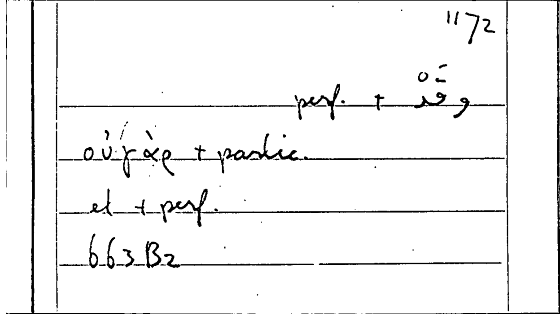 1172
perf. +
οὐ γὰρ + partic.
et + perf.
663 B2